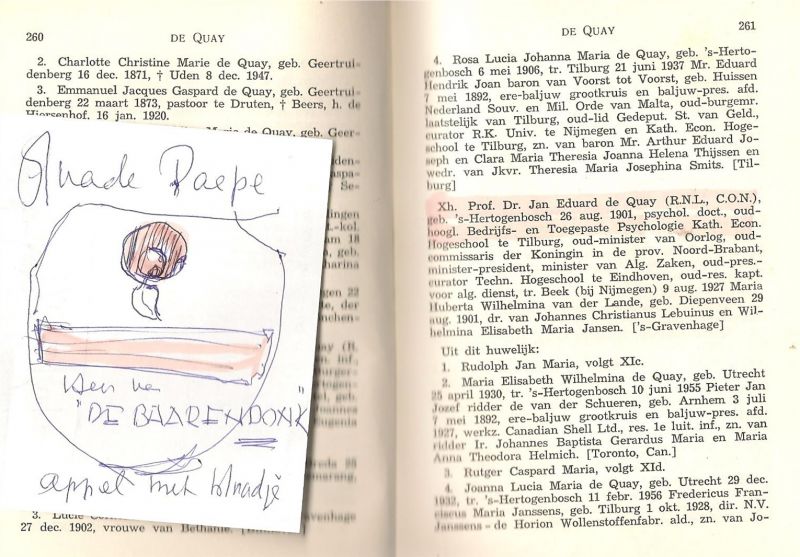 260 DE QUAY
2. Charlotte Christine Marie de Quay, geb. Geertrui-
denberg 16 dec. 1871, † Uden 8 dec. 1947.
3. Emmanuel Jacques Gaspard de Quay, geb. Geertrui-
denberg 22 maart 1873, pastoor te Druten, † Beers, h. de
Hiersenhof, 16 jan. 1920.
de Quay, geb. Geer-
Paepe
"DE BAARENDONK"
appel met
3. Lucie
27 dec. 1902, vrouwe van Bethanie.
DE QUAY 261
4. Rosa Lucia Johanna Maria de Quay, geb. 's-Herto-
genbosch 6 mei 1906, tr. Tilburg 21 juni 1937 Mr. Eduard
Hendrik Joan baron van Voorst tot Voorst, geb. Huissen
7 mei 1892, ere-baljuw grootkruis en baljuw-pres. afd.
Nederland Souv. en Mil. Orde van Malta, oud-burgemr.
laatstelijk van Tilburg, oud-lid Gedeput. St. van Geld.,
curator R.K. Univ. te Nijmegen en Kath. Econ. Hoge-
school te Tilburg, zn. van baron Mr. Arthur Eduard Jo-
seph en Clara Maria Theresia Joanna Helena Thijssen en
wedr. van Jkvr. Theresia Maria Josephina Smits. [Til-
burg]
Xh. Prof. Dr. Jan Eduard de Quay (R.N.L., C.O.N.),
geb. 's-Hertogenbosch 26 aug. 1901, psychol. doct., oud-
hoogl. Bedrijfs- en Toegepaste Psychologie Kath. Econ.
Hogeschool te Tilburg, oud-minister van Oorlog, oud-
commissaris der Koningin in de prov. Noord-Brabant,
minister-president, minister van Alg. Zaken, oud-pres.-
curator Techn. Hogeschool te Eindhoven, oud-res. kapt.
voor alg. dienst, tr. Beek (bij Nijmegen) 9 aug. 1927 Maria
Huberta Wilhelmina van der Lande, geb. Diepenveen 29
aug. 1901, dr. van Johannes Christianus Lebuinus en Wil-
helmina Elisabeth Maria Jansen. ['s-Gravenhage]
Uit dit huwelijk:
1. Rudolph Jan Maria, volgt XIc.
2. Maria Elisabeth Wilhelmina de Quay, geb. Utrecht
25 april 1930, tr. 's-Hertogenbosch 10 juni 1955 Pieter Jan
Jozef ridder de van der Schueren, geb. Arnhem 3 juli
7 mei 1892, ere-baljuw grootkruis en baljuw-pres. afd.
1927, werkz. Canadian Shell Ltd., res. 1e luit. inf., zn. van
ridder Ir. Johannes Baptista Gerardus Maria en Maria
Anna Theodora Helmich. [Toronto, Can.]
3. Rutger Caspard Maria, volgt XId.
4. Joanna Lucia Maria de Quay, geb. Utrecht 29 dec.
1932, tr. 's-Hertogenbosch 11 febr. 1956 Fredericus Fran-
ciscus Maria Janssens, geb. Tilburg 1 okt. 1928, dir. N.V.
Janssens - de Horion Wollenstoffenfabr. ald., zn. van Jo-